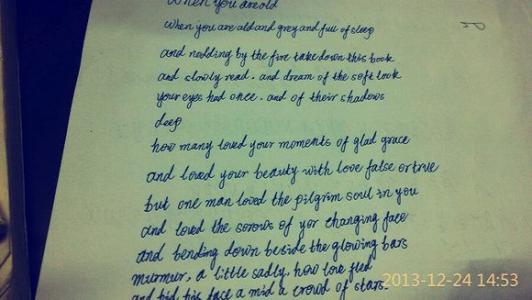 When you are old
When you are ald and grey and full of sleep
and nodding by the fire take down this book
and slowly read. and dream of the soft look
your eyes had once. and of their shadows
deep
how many loved your moments of glad grace
and loved your beauty with love false or true
but one man loved the pilgrim soul in you
and loved the sorows of yor changing face
and bending down beside the glowing bars
murmur, a little sadly, how love fled
and hid his face a mid a crowd of stars.
2013-12-24 14:53